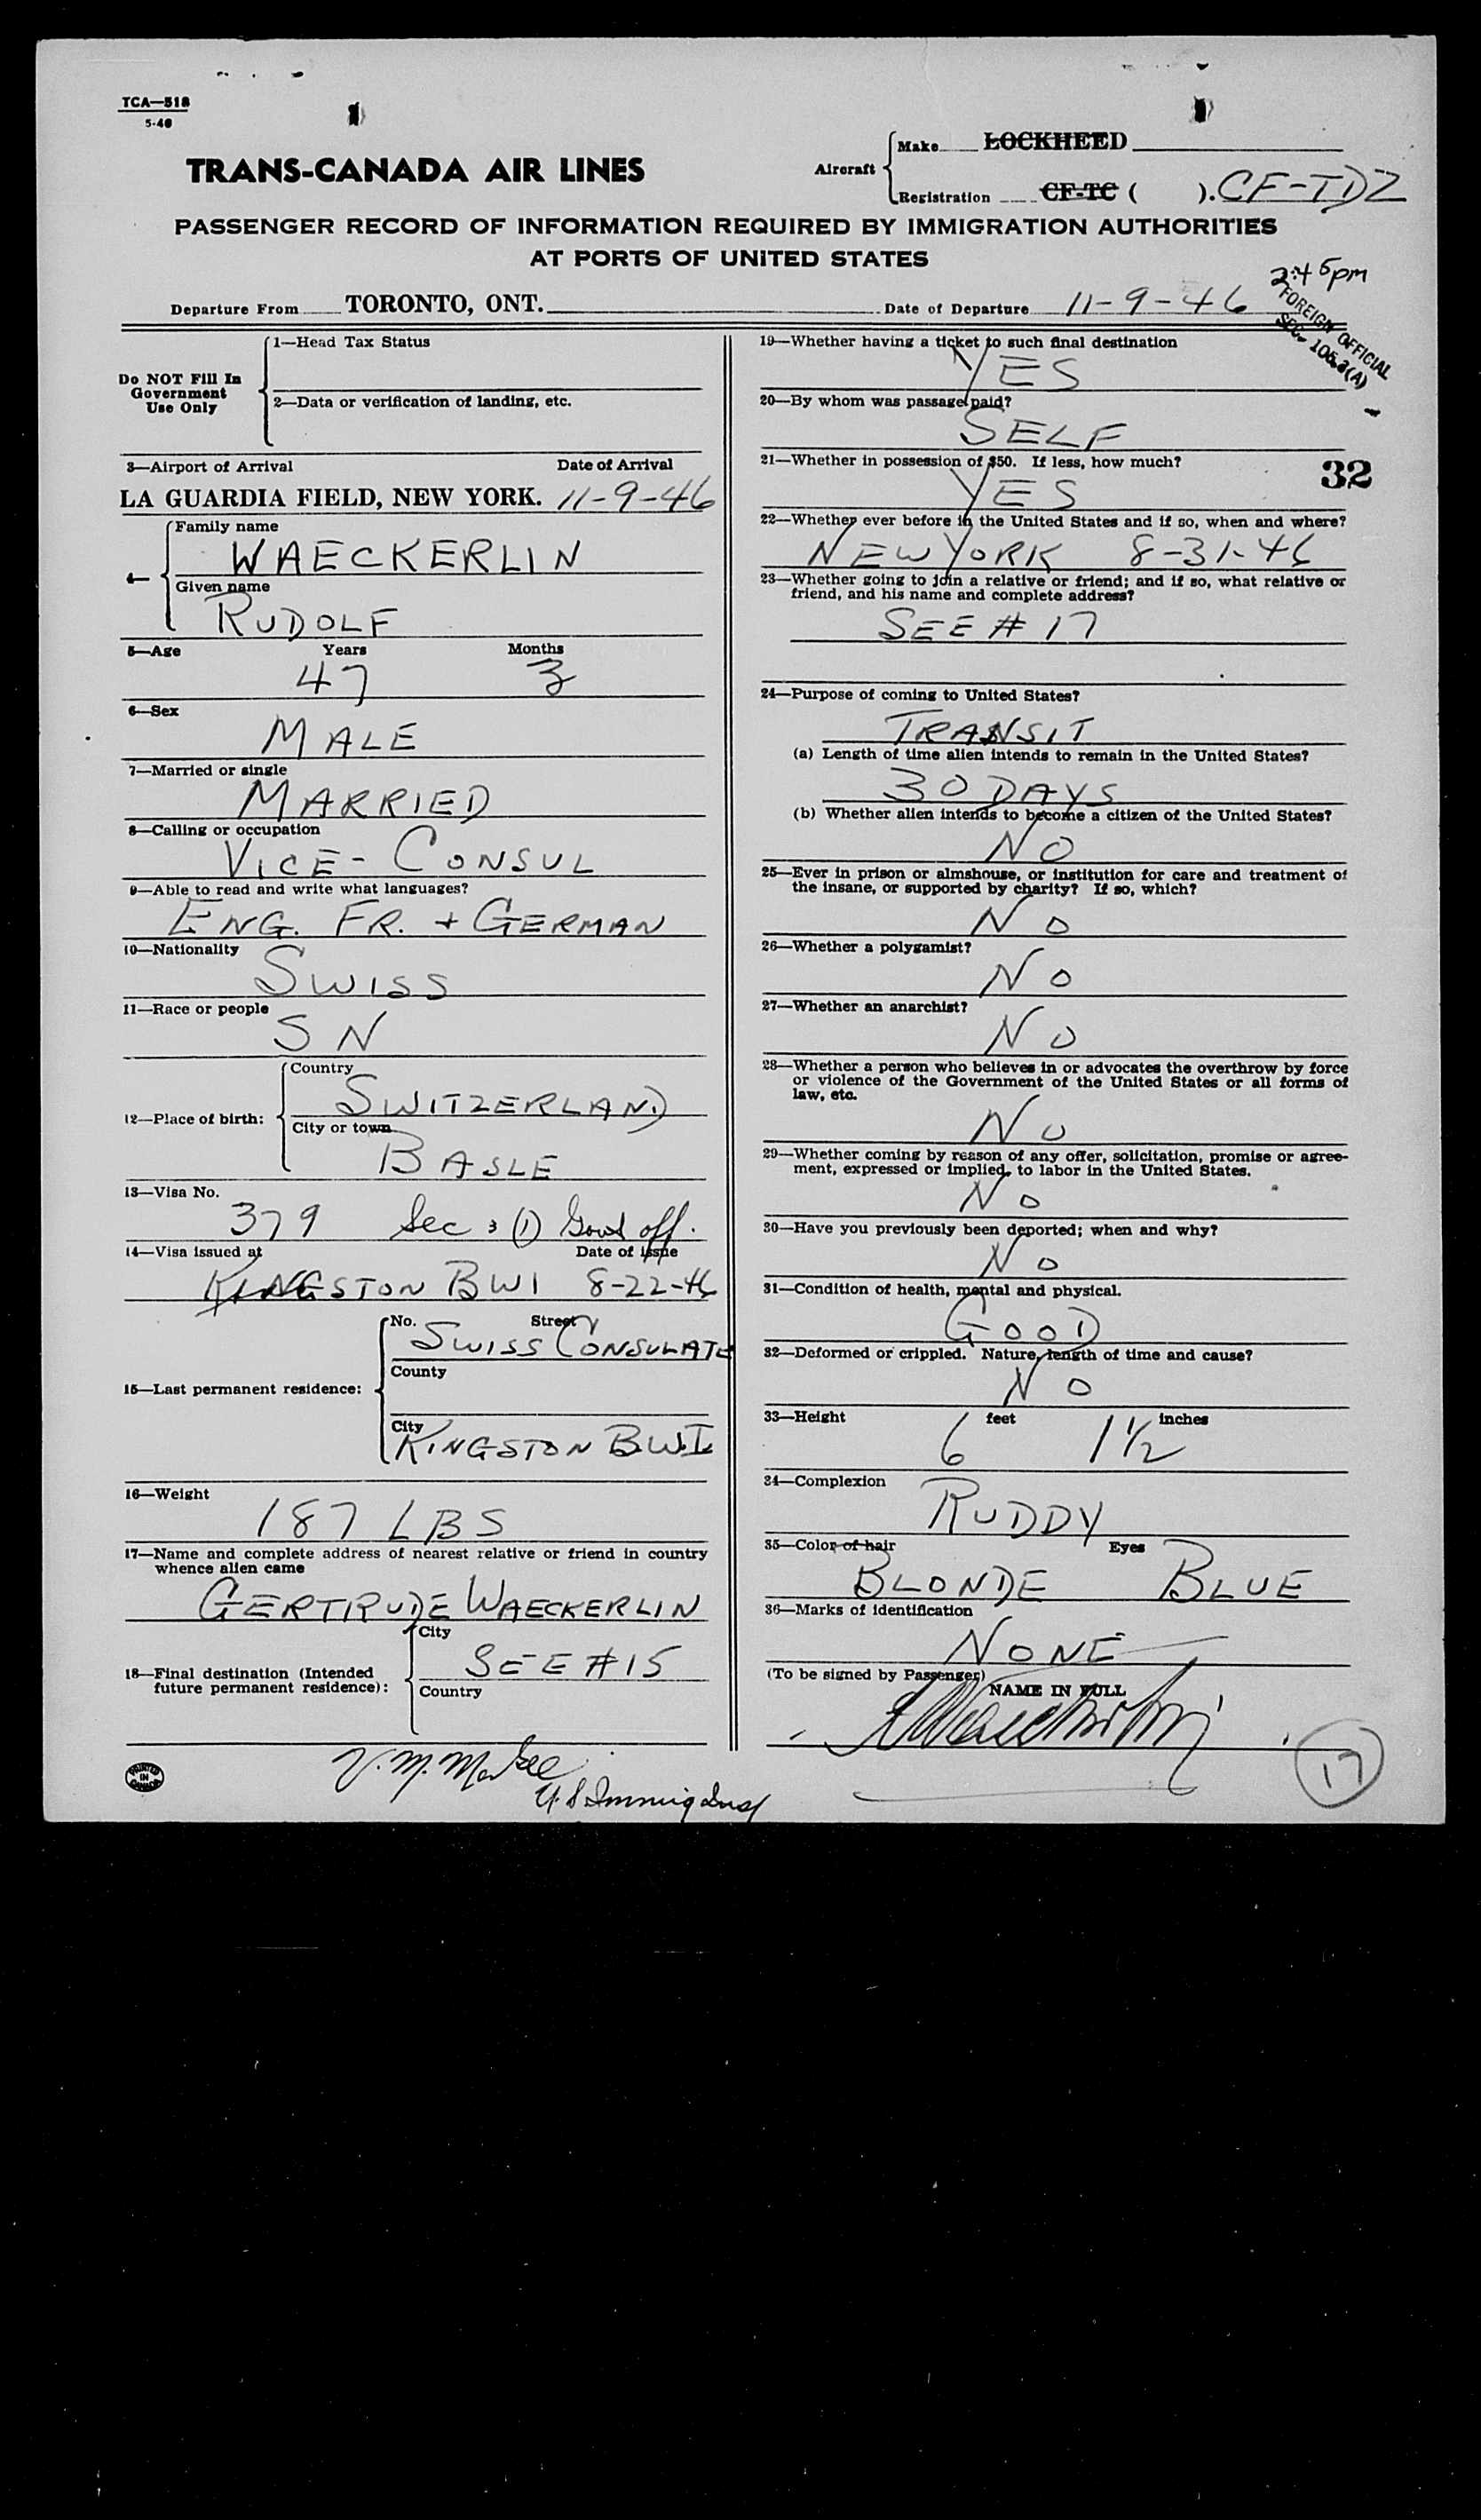 TCA—518
5-46
TRANS-CANADA AIR LINES
Aircraft
Make LOCKHEED
Registration CF-TC ( ). CF-TDZ
PASSENGER RECORD OF INFORMATION REQUIRED BY IMMIGRATION AUTHORITIES
AT PORTS OF UNITED STATES
2:45pm
Departure From TORONTO, ONT. Date of Departure 11-9-46
FOREIGN OFFICIAL
SEC. 105.3(A)
Do NOT Fill In
Government
Use Only
1—Head Tax Status
2—Data or verification of landing, etc.
3—Airport of Arrival Date of Arrival
LA GUARDIA FIELD, NEW YORK. 11-9-46
4—
Family name
WAECKERLIN
Given name
RUDOLF
5—Age Years Months
47 3
6—Sex
MALE
7—Married or single
MARRIED
8—Calling or occupation
VICE-CONSUL
9—Able to read and write what languages?
ENG. FR. + GERMAN
10—Nationality
SWISS
11—Race or people
S N
12—Place of birth:
Country
SWITZERLAND
City or town
BASLE
13—Visa No.
379 Sec 3 (1) Govt off.
14—Visa issued at Date of issue
KINGSTON BWI 8-22-46
15—Last permanent residence:
No. Street
SWISS CONSULATE
County
City
KINGSTON B.W.I.
16—Weight
187 LBS
17—Name and complete address of nearest relative or friend in country
whence alien came
GERTRUDE WAECKERLIN
18—Final destination (Intended
future permanent residence):
City
SEE #15
Country
PRINTED
IN
CANADA
U.S. Immig Insp
19—Whether having a ticket to such final destination
YES
20—By whom was passage paid?
SELF
21—Whether in possession of $50. If less, how much?
32
YES
22—Whether ever before in the United States and if so, when and where?
NEW YORK 8-31-46
23—Whether going to join a relative or friend; and if so, what relative or
friend, and his name and complete address?
SEE #17
24—Purpose of coming to United States?
TRANSIT
(a) Length of time alien intends to remain in the United States?
30 DAYS
(b) Whether alien intends to become a citizen of the United States?
NO
25—Ever in prison or almshouse, or institution for care and treatment of
the insane, or supported by charity? If so, which?
NO
26—Whether a polygamist?
NO
27—Whether an anarchist?
NO
28—Whether a person who believes in or advocates the overthrow by force
or violence of the Government of the United States or all forms of
law, etc.
NO
29—Whether coming by reason of any offer, solicitation, promise or agree-
ment, expressed or implied, to labor in the United States.
NO
30—Have you previously been deported; when and why?
NO
31—Condition of health, mental and physical.
GOOD
32—Deformed or crippled. Nature, length of time and cause?
NO
33—Height feet inches
6 1 1/2
34—Complexion
RUDDY
35—Color of hair Eyes
BLONDE BLUE
36—Marks of identification
NONE
(To be signed by Passenger)
NAME IN FULL
17